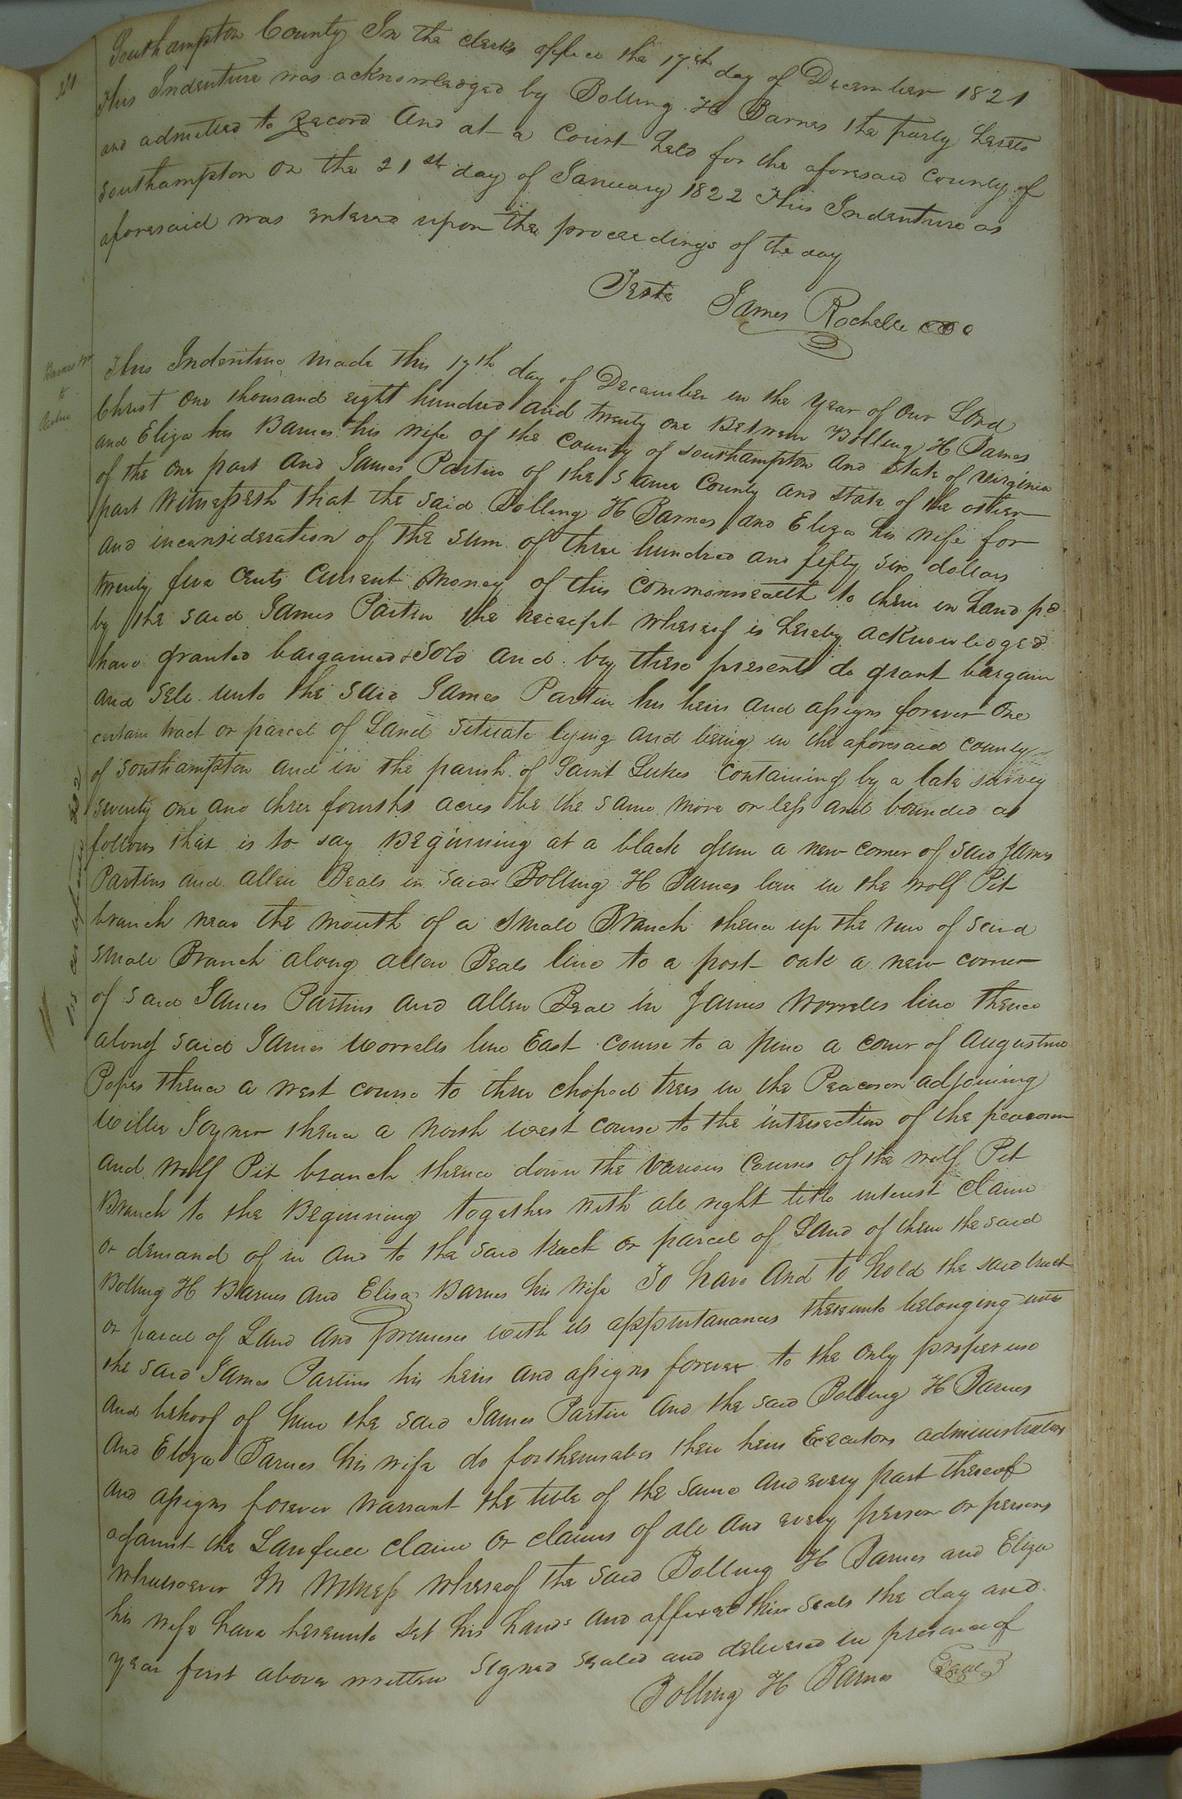 Southampton County In the clerks office the 17th day of December 1821
This Indenture was acknowledged by Bolling H Barnes the party hereto
and admitted to Record And at a Court held for the aforesaid County of
Southampton on the 21st day of January 1822 This Indenture as
aforesaid was entered upon the proceedings of the day
Teste James Rochelle
This Indenture made this 17th day of December in the Year of Our Lord
Christ One thousand eight hundred and twenty one Between Bolling H Barnes
and Eliza his Barnes his wife of the County of Southampton and State of Virginia
of the one part and James Partin of the same County and state of the other
part Witnesseth that the said Bolling H Barnes and Eliza his wife for
and inconsideration of the sum of three hundred and fifty six dollars
twenty five cents Current Money of this commonwealth to them in hand pd
by the said James Partin the receipt whereof is hereby acknowledged
have granted bargained & Sold and by these presents do grant bargain
and Sell unto the said James Partin his heirs and assigns forever One
certain tract or parcel of Land situate lying and being in the aforesaid County
of Southampton and in the parish of Saint Lukes containing by a late survey
seventy one and three fourths acres be the same more or less and bounded as
follows that is to say Beginning at a black gum a new corner of said James
Partins and allen Beals in said Bolling H Barnes line in the wolf Pit
branch near the mouth of a Small Branch thence up the run of said
small Branch along allen Beals line to a post oak a new corner
of said James Partins and allen Beal in James Worrells line thence
along said James Worrells line East course to a pine a corner of Augustine
Popes thence a west course to three choped trees in the Peacoson adjoining
Willie Joyner thence a North west course to the intersection of the peacoson
and Wolf Pit branch thence down the various courses of the wolf Pit
Branch to the Beginning together with all right title interest claim
or demand of in and to the said track or parcel of Land of them the said
Bolling H Barnes and Eliza Barnes his wife To have and to hold the said tract
or parcel of Land and premises with its appurtanances thereunto belonging unto
the said James Partins his heirs and assigns forever to the only proper use
and behoof of him the said James Partin and the said Bolling H Barnes
and Eliza Barnes his wife do for themselves their heirs Executors administrators
and assigns forever Warrant the title of the same and every part thereof
against the Lawfull claim or claims of all and every person or persons
whatsoever In Witness whereof the said Bolling H Barnes and Eliza
his wife have hereunto set his hands and affixed their seals the day and
year first above written Signed sealed and delivered in presence of
Bolling H Barnes Seal